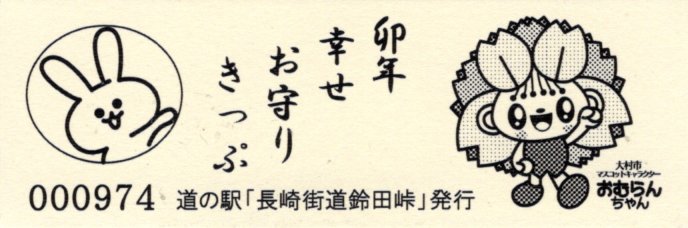 卯年
幸せ
お守り
きっぷ
000974 道の駅「長崎街道鈴田峠」発行
大村市
マスコットキャラクター
おむらん
ちゃん